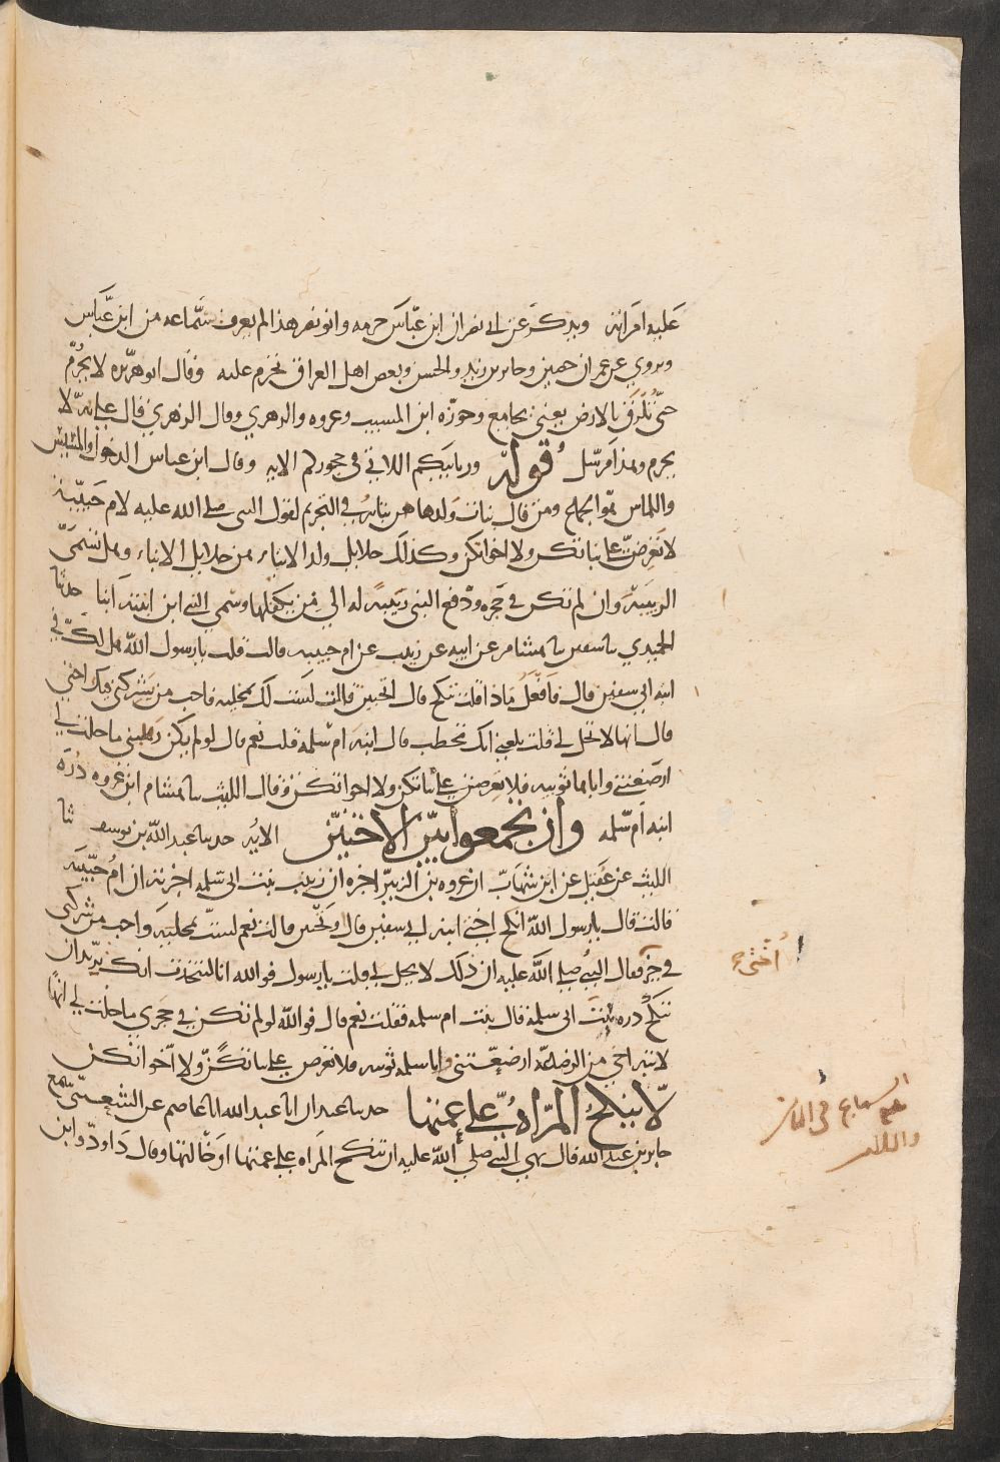 عليه امرأته ويذكر عن ابي نصر ان ابن عباس حرمه وابو نصر هذا لم يعرف سماعه من ابن عباس
ويروي عن عمران حصين وجابر بن زيد والحسن وبعض اهل العراق تحرم عليه وقال ابو هريره لا يحرم
حتى تلزق بالارض يعني يجامع وجوزه ابن المسيب وعروه والزهري وقال الزهري قال علي لا
يحرم وهذا مرسل قوله وربايبكم اللاتي في حجوركم الايه وقال ابن عباس الدخول والمسيس
واللماس هو الجماع ومن قال بنات ولدها هن بناته في التحريم لقول النبي صلي الله عليه لام حبيبة
لا تعرضن علي بناتكن ولا اخواتكن وكذلك حلايل ولد الابناء هن حلايل الابناء وهل تسمى
الربيبة وان لم تكن في حجره ودفع النبي ربيبة له الي من يكفلها وسمي النبي ابن ابنته ابنا حدثنا
الحميدي نا سفين نا هشام عن ابيه عن زينب عن ام حبيبه قالت قلت يا رسول الله هل لك في
ابنه ابي سفين قال فافعل ماذا قلت تنكح قال اتحبين قالت لست لك بمخليه واحب من يشركني فيك اختي
قال انها لا تحل لي قلت بلغني انك تخطب قال ابنه ام سلمه قلت نعم قال لو لم تكن ربيبتي ما حلت لي
ارضعتني واباها ثويبه فلا تعرضن علي بناتكن ولا اخواتكن وقال الليث نا هشام ابن عروه درة
ابنه ام سلمه وان تجمعوا بين الاختين الايه حدثنا عبد الله بن يوسف نا
الليث عن عقيل عن ابن شهاب ان عروه بن الزبير اخبره ان زينب بنت ابي سلمه اخبرته ان ام حبيبه
قالت قال يا رسول الله انكح اختي ابنه ابي سفين قال وتحبين قالت نعم لست بمخليه واحب من شركني
في خير فقال النبي صلي الله عليه ان ذلك لا يحل لي قلت يا رسول فوالله انا لنتحدث انك تريد ان
تنكح دره بنت ابي سلمه قال بنت ام سلمه فقلت نعم قال فوالله لو لم تكن في حجري ما حلت لي انها
لابنة اخي من الرضاعه ارضعتني وابا سلمه ثويبه فلا تعرضن علي بناتكن ولا اخواتكن
لا ينكح المراه علي عمتها حدثنا عبدان انا عبد الله انا عاصم عن الشعبي سمع
جابر بن عبد الله قال نهي النبي صلي الله عليه ان تنكح المراه علي عمتها او خالتها وقال داود وابن
اختي